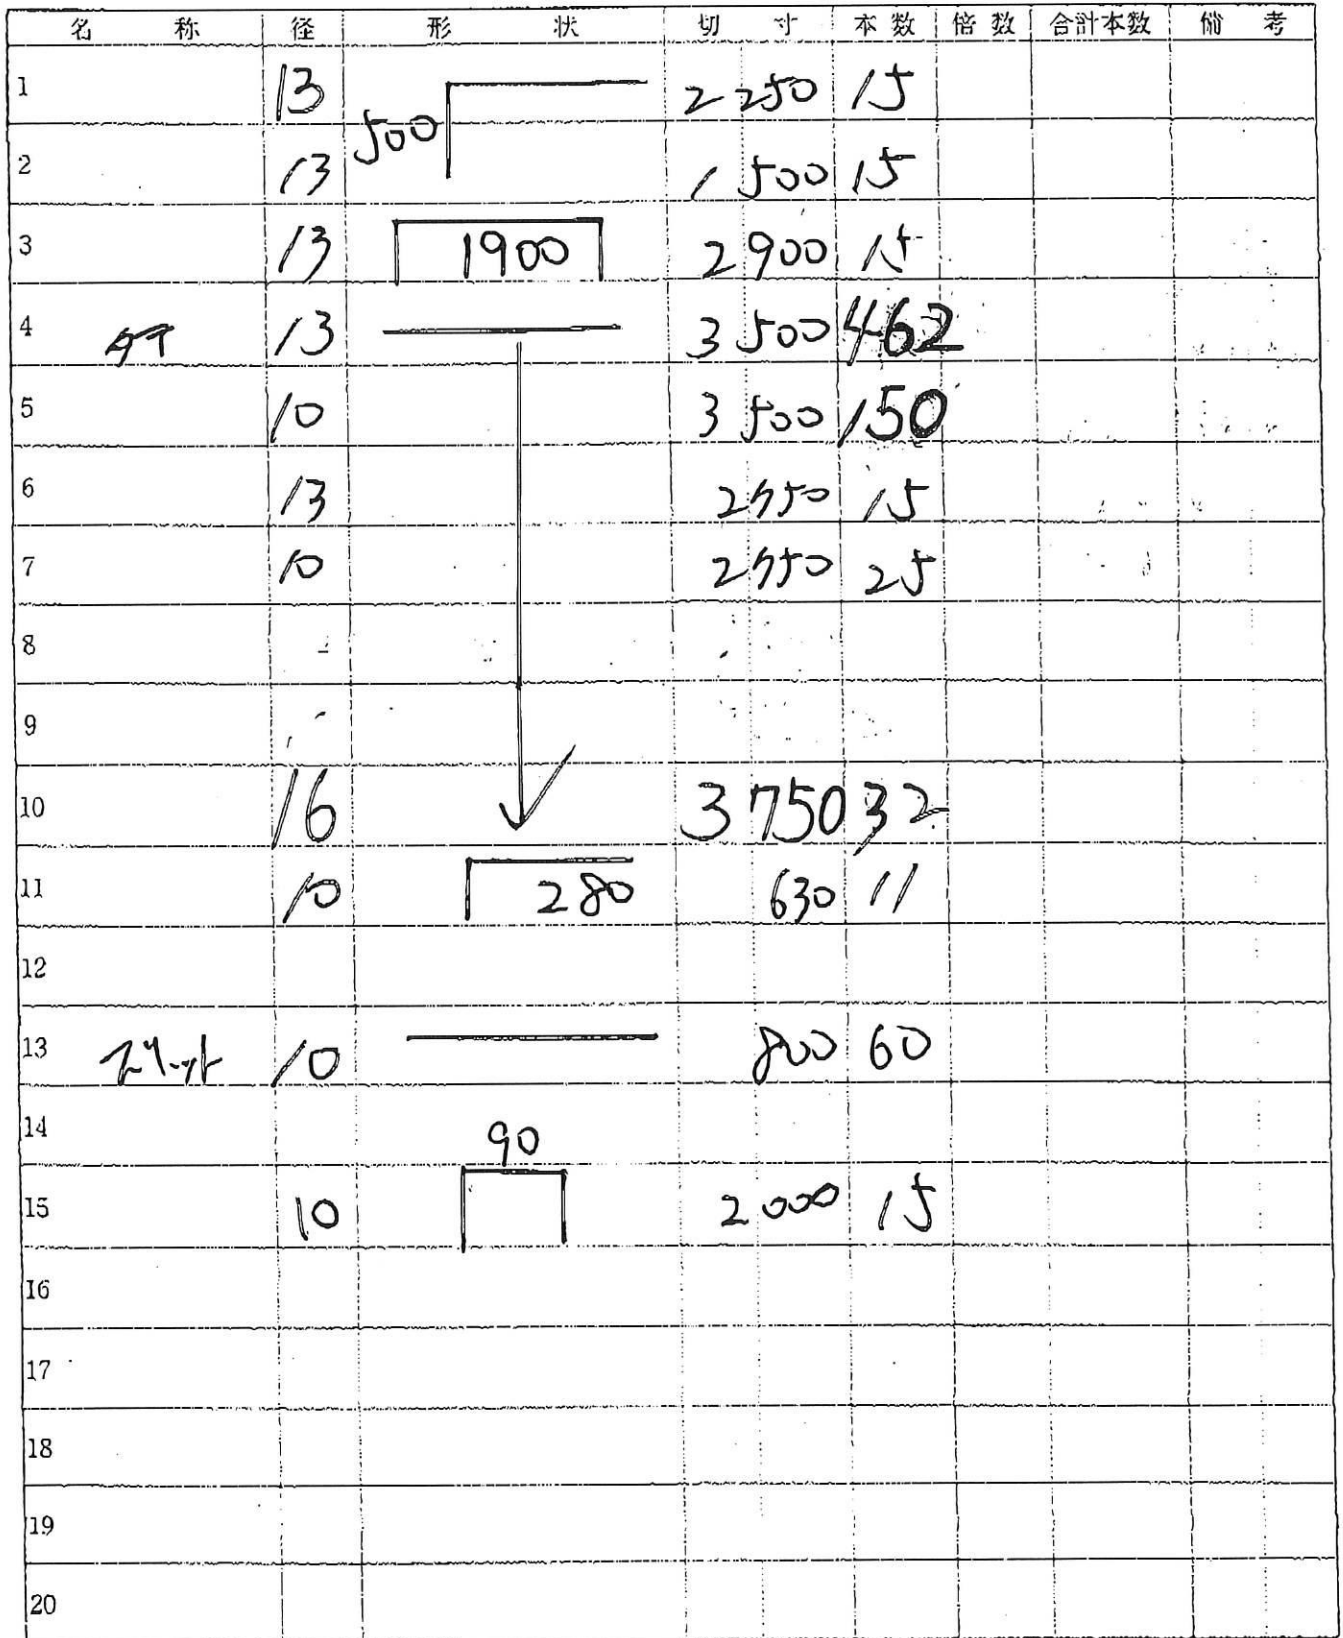 名 称 径 形 状 切 寸 本数 倍数 合計本数 備 考
1 13 2 250 15
500
2 13 1 500 15
3 13 1900 2 900 15
4 タテ 13 3 500 462
5 10 3 500 150
6 13 15
7 10 25
8
9
10 16 3 750 32
11 10 280 630 11
12
13 スリット 10 800 60
14
90
15 10 2 000 15
16
17
18
19
20